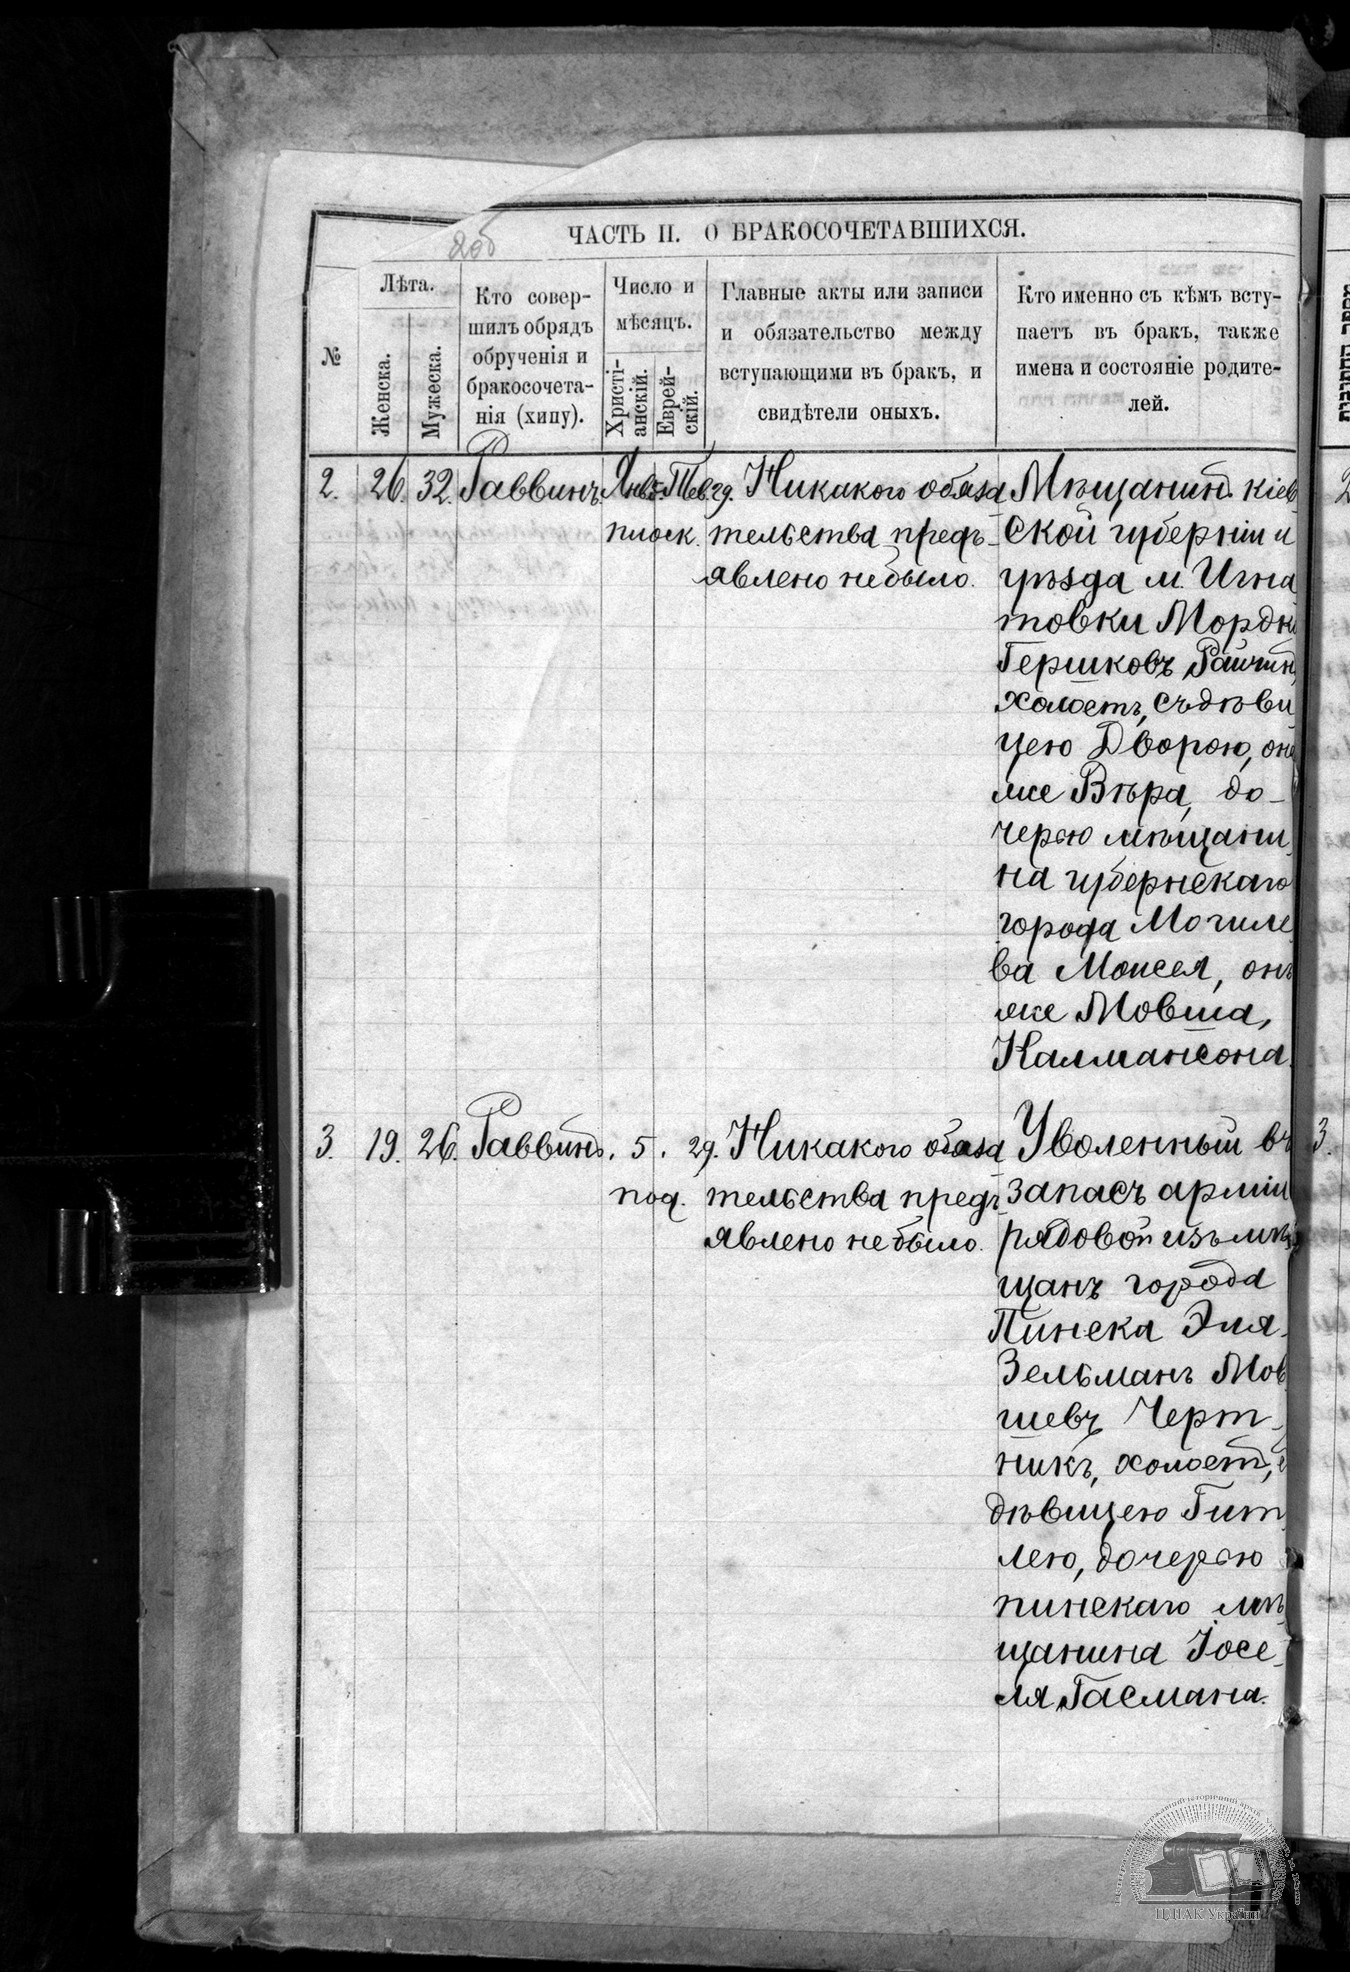 ЧАСТЬ II. О БРАКОСОЧЕТАВШИХСЯ.
№
Лѣта.
Женска.
Мужеска.
Кто совер-
шилъ обрядъ
обрученія и
бракосочета-
нія (хипу).
Число и
мѣсяцъ.
Христі-
анскій.
Еврей-
скій.
Главные акты или записи
и обязательство между
вступающими въ бракъ, и
свидѣтели оныхъ.
Кто именно съ кѣмъ всту-
паетъ въ бракъ, также
имена и состояніе родите-
лей.
2. 26. 32. Раввинъ. Янв. 5. Тев. 29.
Никакого обяза
тельства предъ-
явлено не было.
Мѣщанинъ кіев
ской губерніи и
уѣзда м. Игна
товки Мордко
Гершковъ
холостъ, съ дѣви
цею Дворою, она
же Вѣра, до-
черью мѣщани
на губернскаго
города Могиле
ва Моисея, онъ
же Мовша,
Калмансона.
3. 19. 26. Раввинъ. 5. 29.
под.
Никакого обяза
тельства предъ-
явлено не было.
Уволенный въ
запасъ арміи
рядовой изъ мѣ
щанъ города
Пинска Эля-
Зельманъ Мов
шевъ Черт-
никъ, холостъ, с
дѣвицею Гит
лею, дочерью
пинскаго мѣ
щанина Іосе-
ля Гасмана.
3.
ЦДІАК України